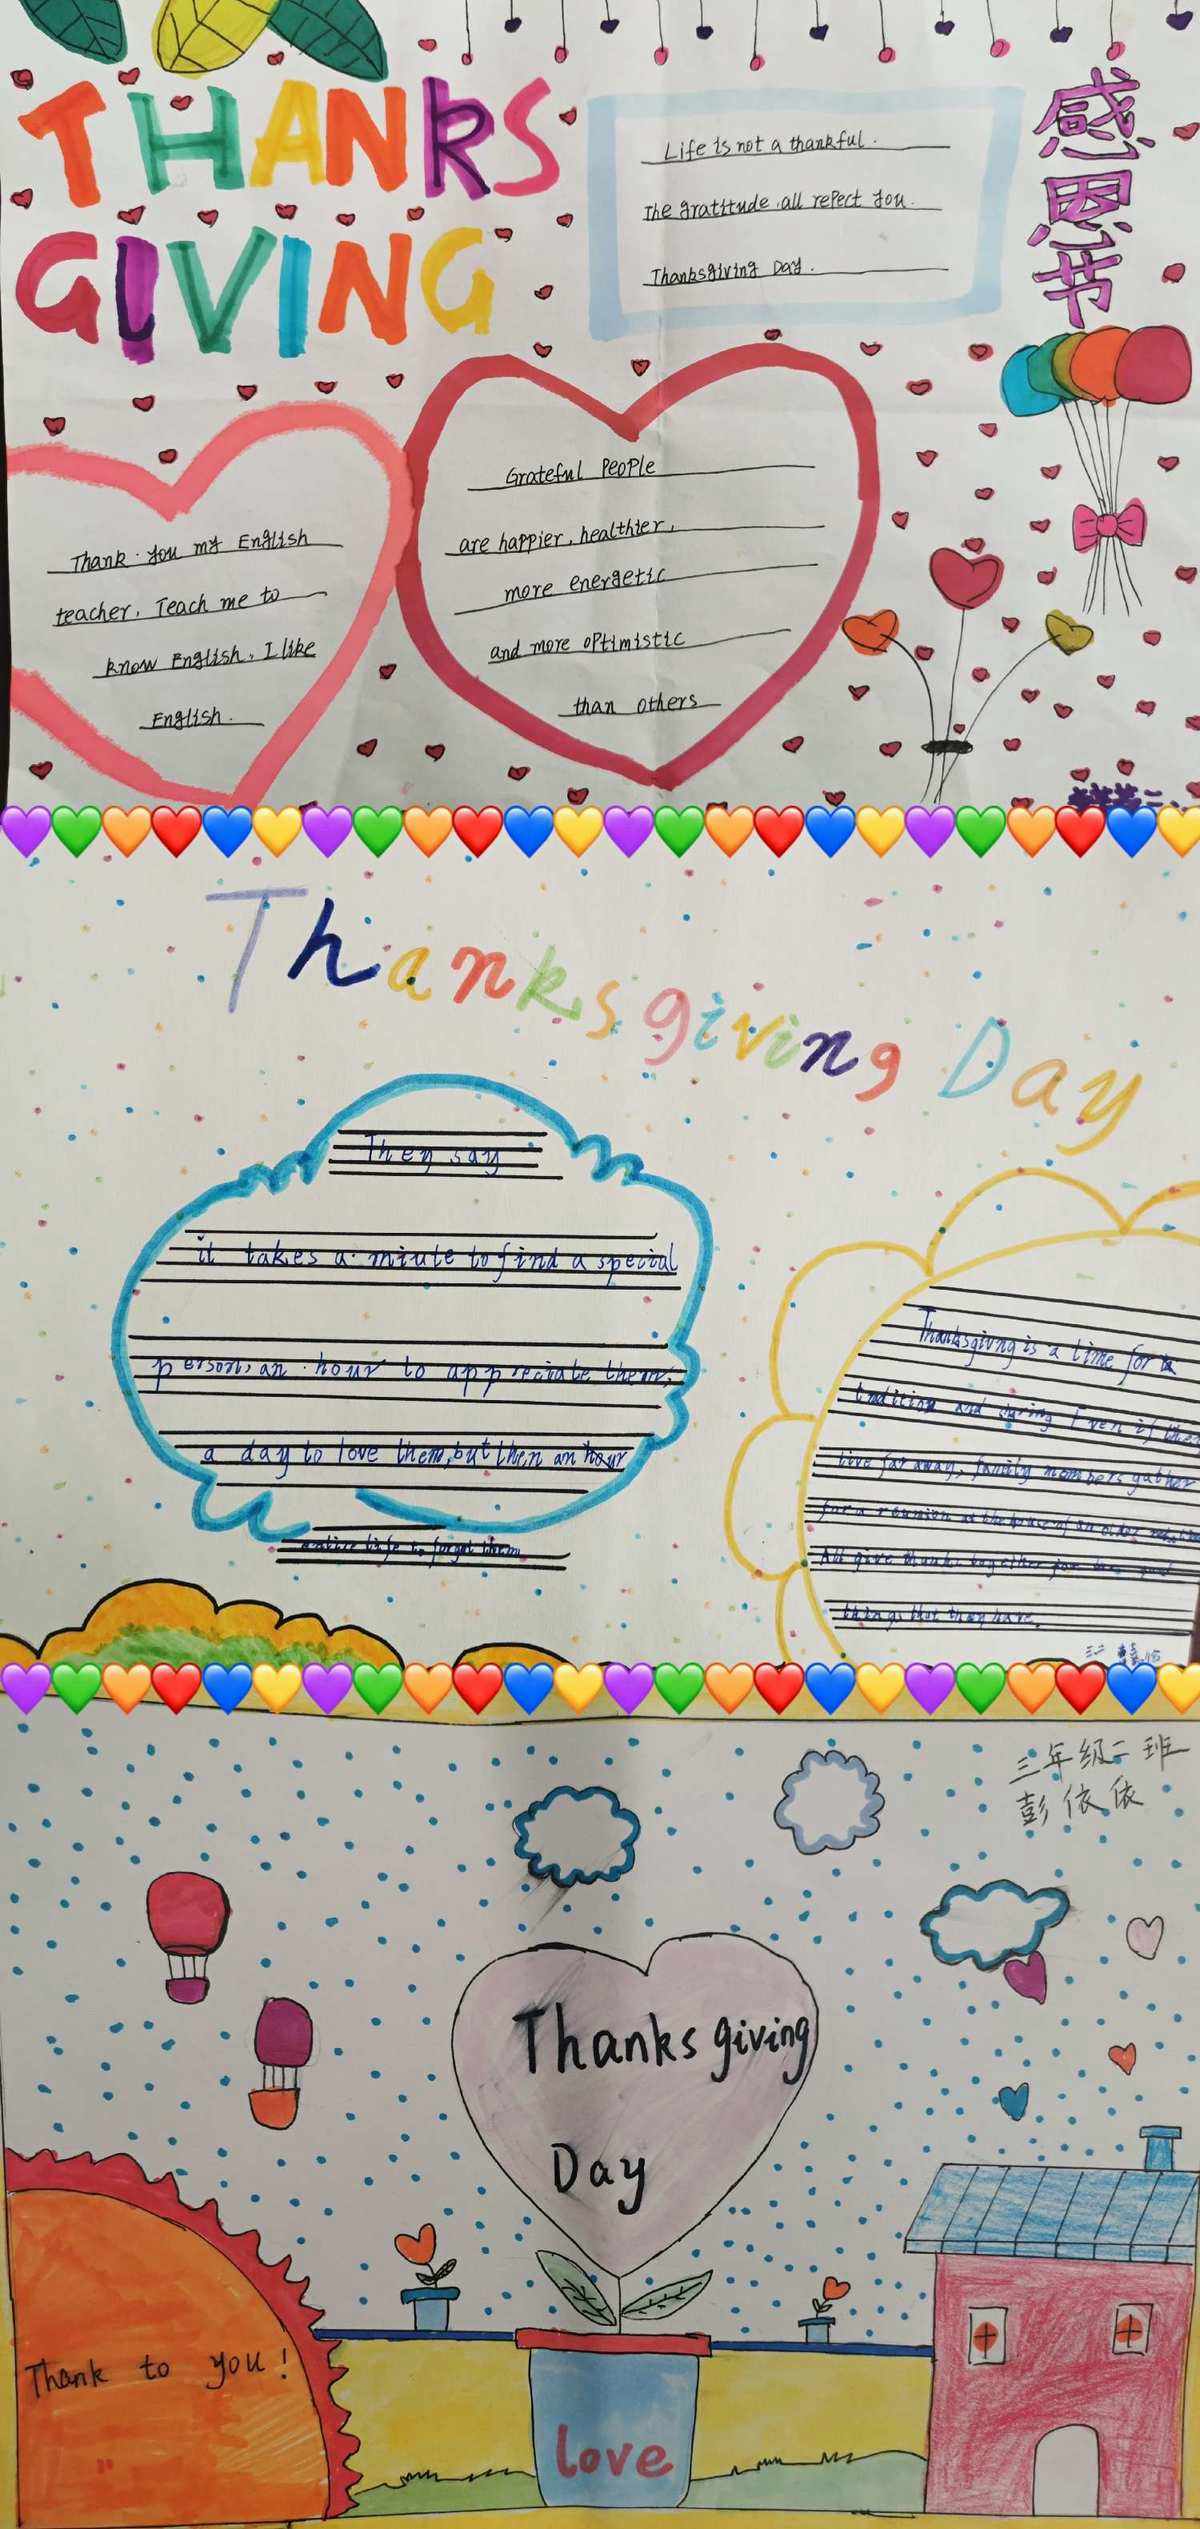 THANKS
GIVING
Life is not a thankful.
The gratitude all repect you.
Thanksgiving Day.
感恩节
Thank you my English
teacher. Teach me to
know English. I like
English.
Grateful People
are happier, healthier,
more energetic
and more optimistic
than others
Thanksgiving Day
They say
it takes a miute to find a special
person, an hour to appreciate them,
a day to love them, but then an hour
entire life to forget them
Thanksgiving is a time for
tradition and sharing Even if they
live far away, family members gather
for a reunion at the house of an older
All give thanks together for the good
things that they have.
三年级二班
彭依依
Thanksgiving
Day
Thank to you!
love